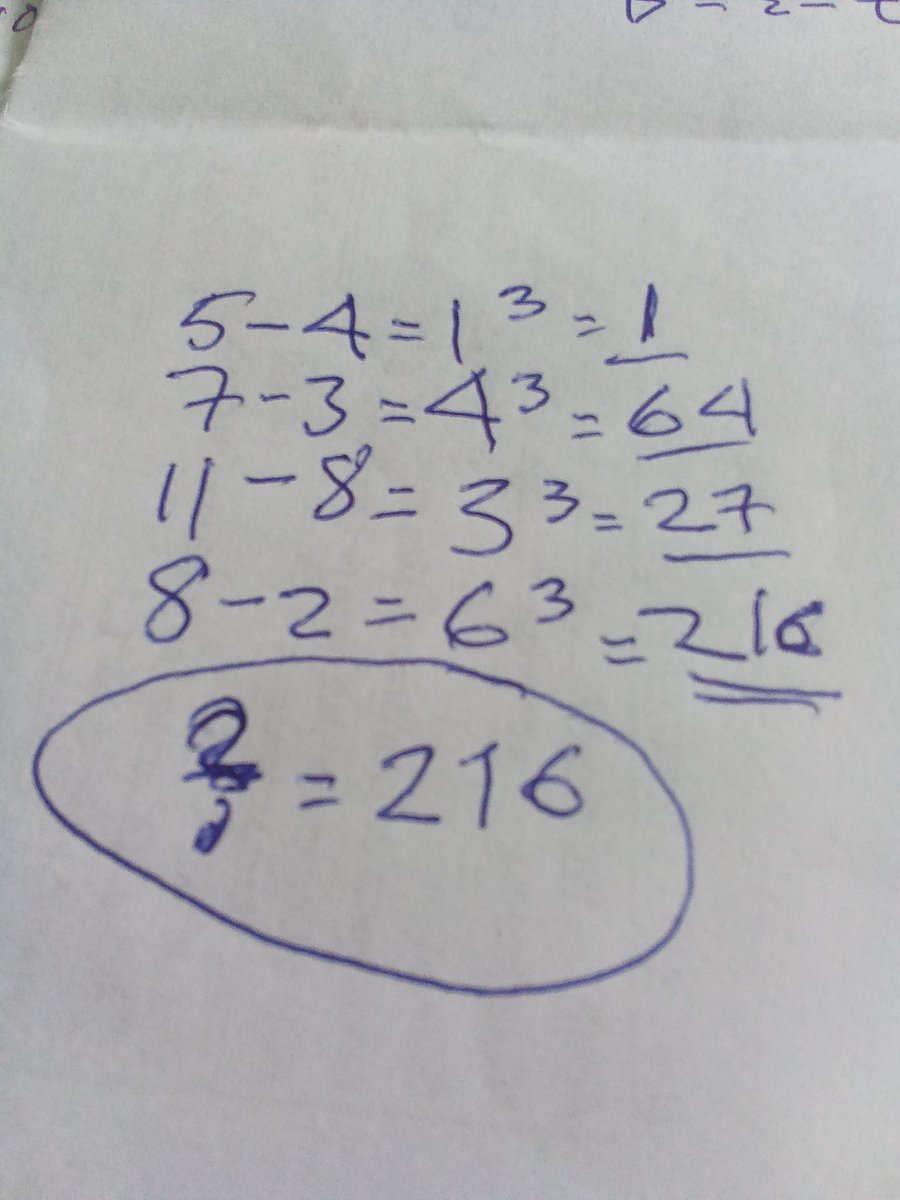 5-4=1³=1
7-3=4³=64
11-8=3³=27
8-2=6³=216
?=216